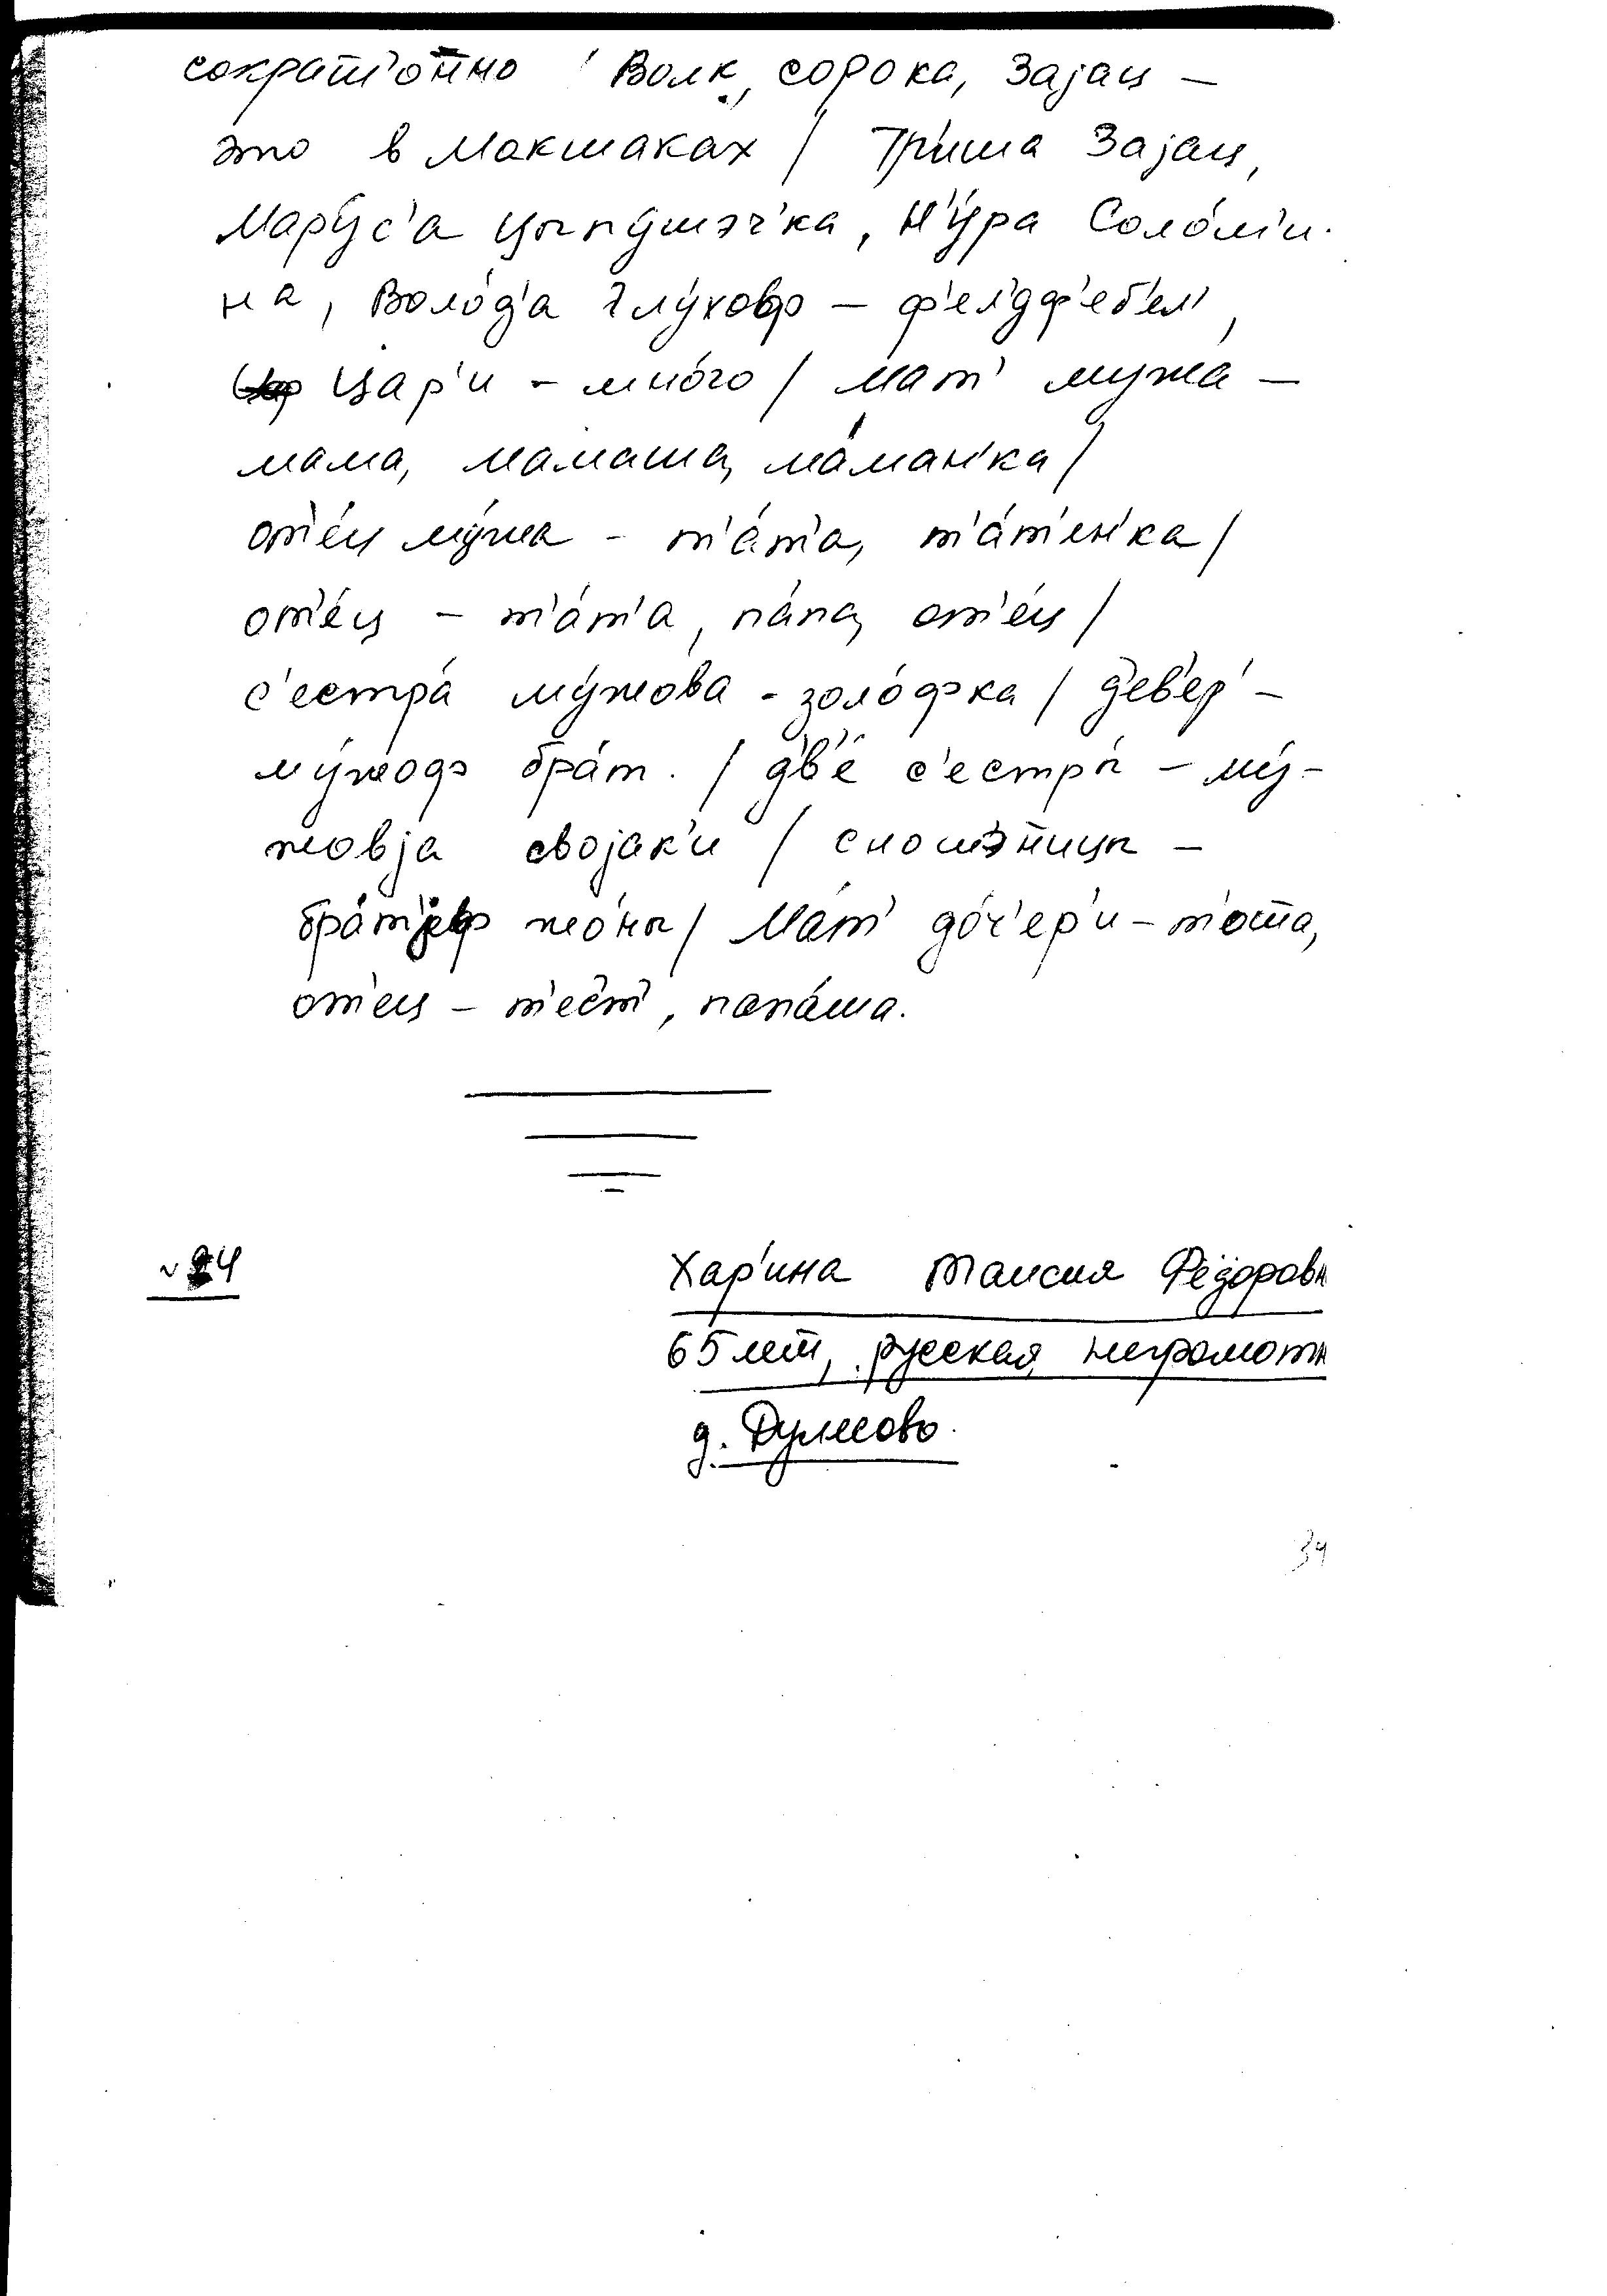 сократ'онно / Волк, сорока, Зајац —
это в Макшаках / Гр'иша Зајац,
Мару́с'а Цыпу́шэч'ка, Н'у́ра Соло́м'и-
на, Воло́д'а Глу́ховф — ф'ел'дф'еб'ел',
Цар'и — мно́го / мат' мужа —
мама, мамаша, ма́ман'ка /
от'е́ц му́жа - т'а́т'а, т'а́т'ен'ка /
от'е́ц - т'а́т'а, па́па, от'е́ц /
с'естра́ му́жова - золо́фка / д'ев'ер' —
му́жоф бра́т. / дв'е́ с'естры́ — му́-
жовја својак'и / сношэ́ницы —
бра́т'јеф жо́ны / Ма́т' до́ч'ер'и — т'ошша,
от'ец — т'ес'т', папа́ша.
№ 24
Хар'ина Таисия Фёдоровн
65 лет, русская, неграмотн
д. Думсово.
34